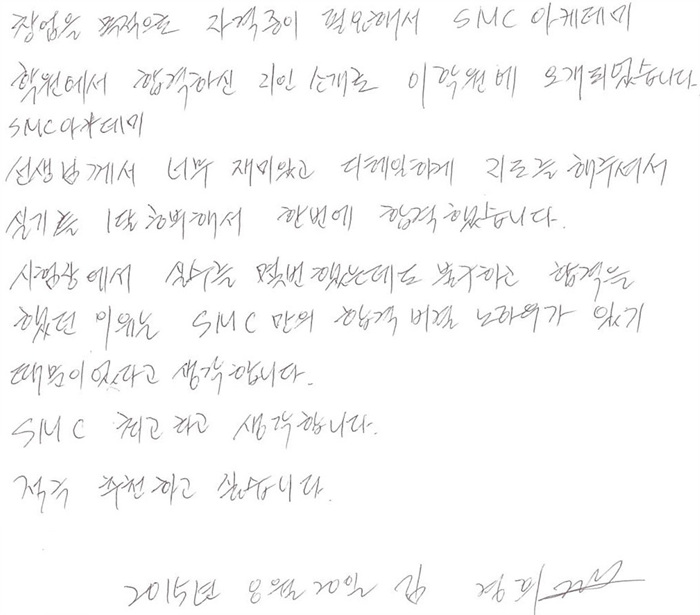 창업을 목적으로 자격증이 필요해서 SMC 아케데미
학원에서 합격하신 지인 소개로 이 학원에 오게되었습니다.
SMC아카데미
선생님께서 너무 재미있고 디테일하게 지도를 해주셔서
실기를 1달 준비해서 한번에 합격했습니다.
시험장에서 실수를 몇번 했는데도 불구하고 합격을
했던 이유는 SMC 만의 합격 비결 노하우가 있기
때문이었다고 생각합니다.
SMC 최고라고 생각합니다.
적극 추천하고 싶습니다.
2015년 8월 20일 김 경희